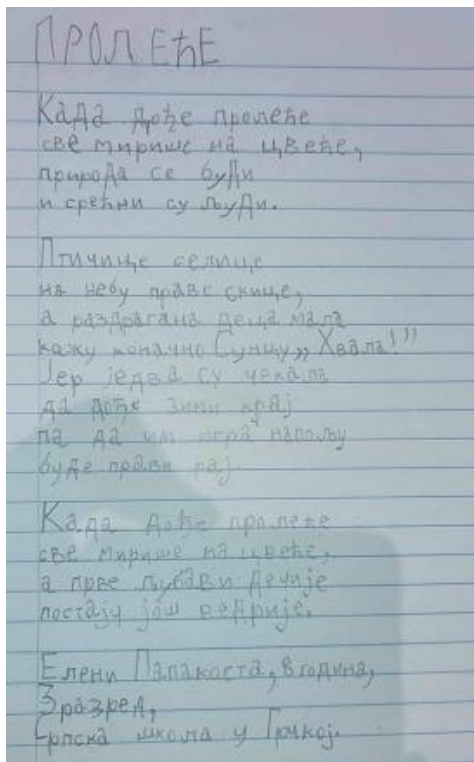 ПРОЛЕЋЕ
Када дође пролеће
све мирише на цвеће,
природа се буди
и срећни су људи.
Птичице селице
на небу праве скице,
а раздрагана деца мала
кажу коначно Сунцу „Хвала!”
Јер једва су чекала
да дође зими крај
па да им игра напољу
буде прави рај.
Када дође пролеће
све мирише на цвеће,
а прве љубави дечије
постају још ведрије.
Елени Папакоста, 8 година,
3 разред,
Српска школа у Грчкој.